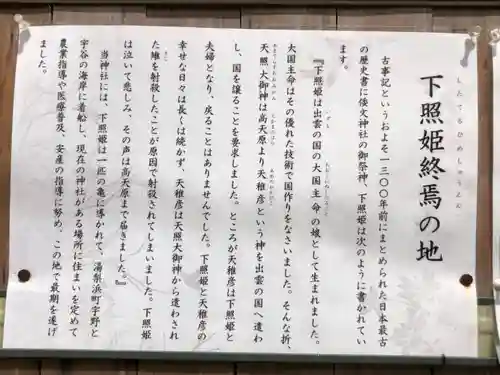 下照姫終焉の地
したてるひめしゅうえん
古事記というおよそ一三〇〇年前にまとめられた日本最古
の歴史書に倭文神社の御祭神、下照姫は次のように書かれてい
ます。
『下照姫は出雲の国の大国主命の娘として生まれました。
大国主命はその優れた技術で国作りをなさいました。そんな折、
天照大御神は高天原より天稚彦という神を出雲の国へ遣わ
し、国を譲ることを要求しました。ところが天稚彦は下照姫と
夫婦となり、戻ることはありませんでした。下照姫と天稚彦の
幸せな日々は長くは続かず、天稚彦は天照大御神から遣わされ
た雉を射殺したことが原因で射殺されてしまいました。下照姫
は泣いて悲しみ、その声は高天原まで届きました。』
当神社には、下照姫は一匹の亀に導かれて、湯梨浜町宇野と
宇谷の海岸に着船し、現在の神社がある場所に住まいを定めて
農業指導や医療普及、安産の指導に努め、この地で最期を遂げ
ました。